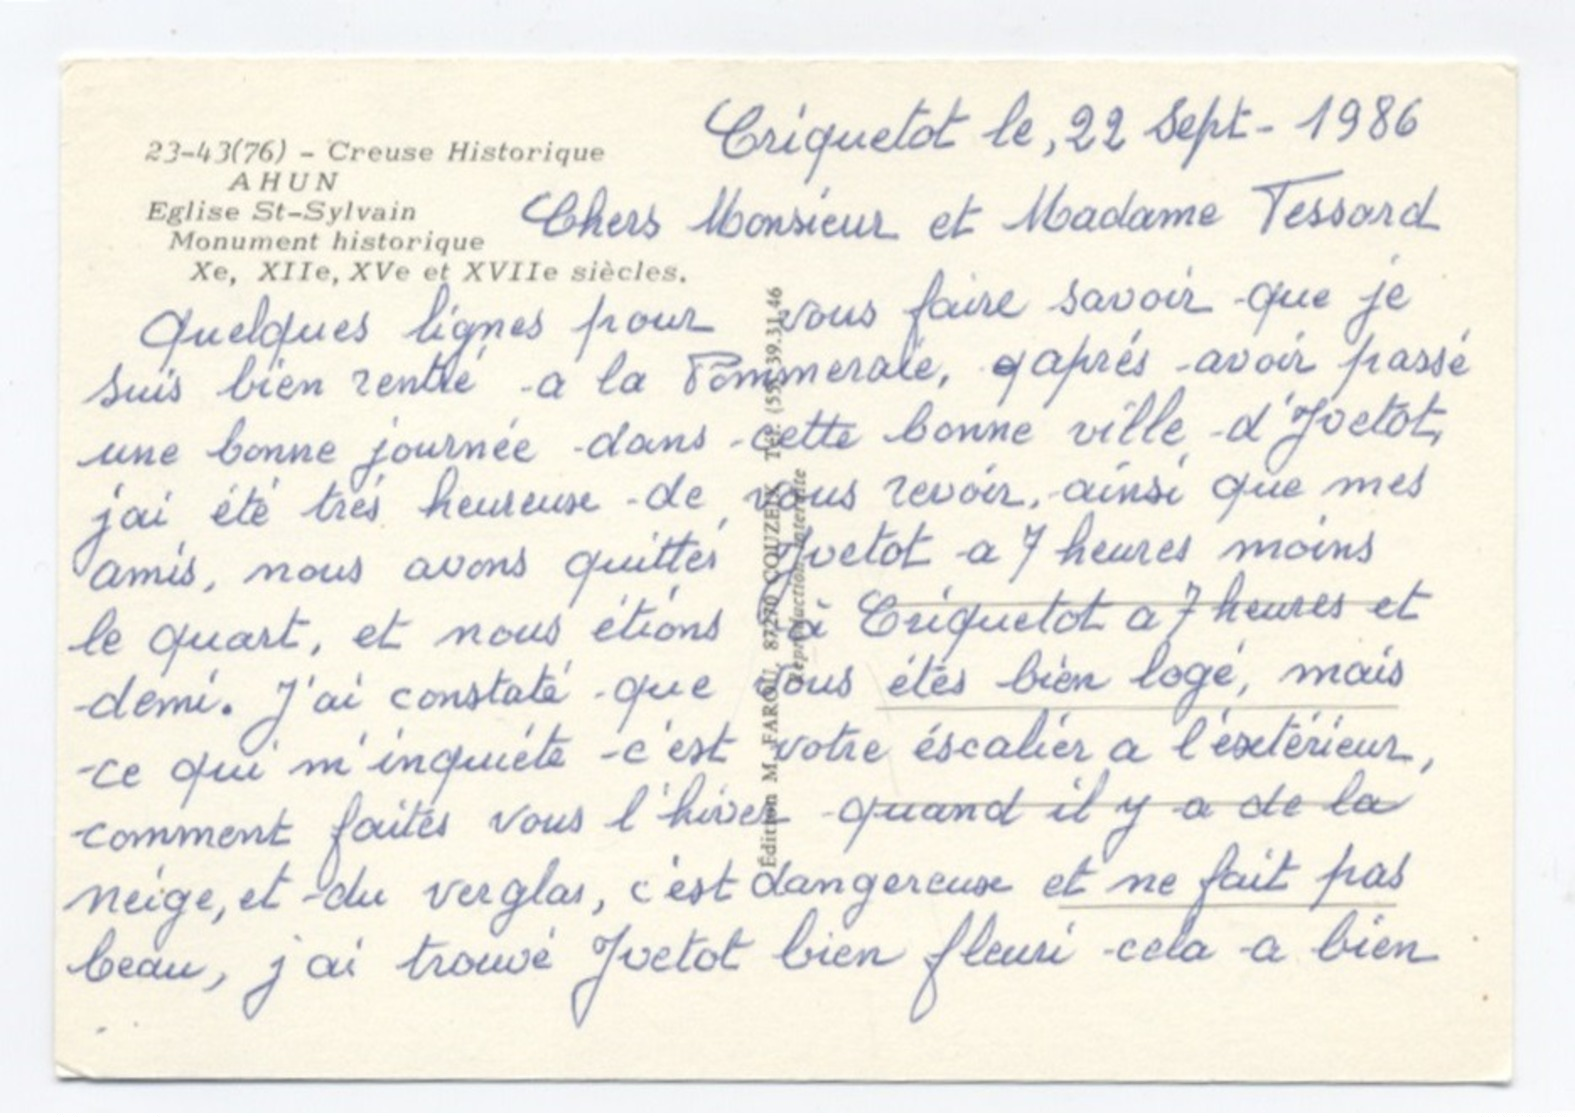 23-43(76) - Creuse Historique
AHUN
Eglise St-Sylvain
Monument historique
Xe, XIIe, XVe et XVIIe siècles.
Criquetot le, 22 Sept - 1986
Chers Monsieur et Madame Tessard
Quelques lignes pour vous faire savoir que je
suis bien rentré a la Pommeraie, aprés avoir passé
une bonne journée dans cette bonne ville d'Yvetot,
j'ai été trés heureuse de vous revoir, ainsi que mes
amis, nous avons quittés Yvetot a 7 heures moins
le quart, et nous étions à Criquetot a 7 heures et
demi. J'ai constaté que vous étés bien logé, mais
ce qui m'inquiéte c'est votre éscalier a l'éxtérieur,
comment faités vous l'hiver quand il y a de la
neige, et du verglas, c'est dangereuse et ne fait pas
beau, j'ai trouvé Yvetot bien fleuri cela a bien
Édition M. FAROU, 87270 COUZEIX Tél. (55) 39.31.46
Reproduction interdite